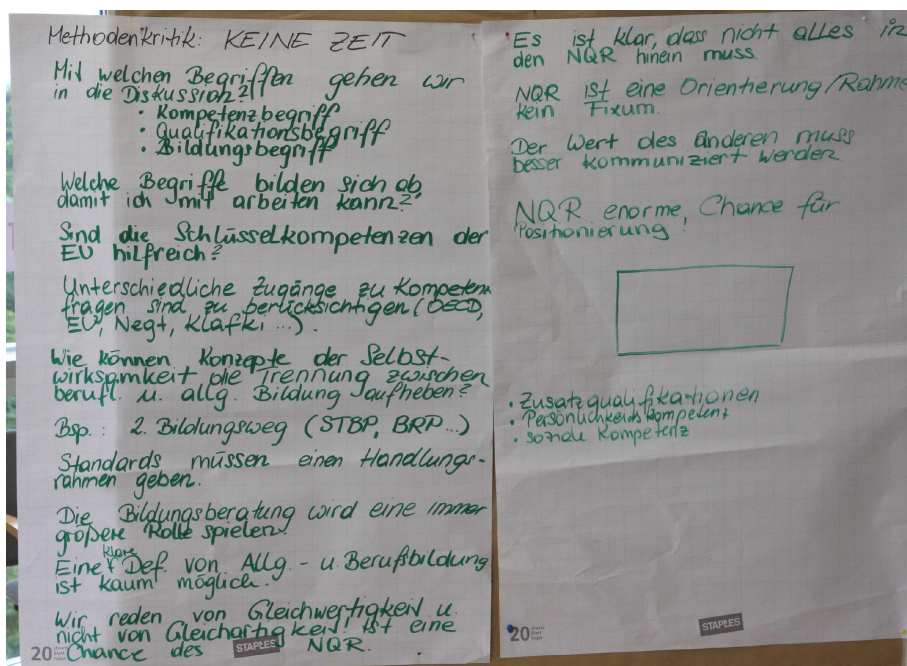 Methodenkritik: KEINE ZEIT
Mit welchen Begriffen gehen wir
in die Diskussion?
• Kompetenzbegriff
• Qualifikationsbegriff
• Bildungsbegriff
Welche Begriffe bilden sich ab,
damit ich mit arbeiten kann?
Sind die Schlüsselkompetenzen der
EU hilfreich?
Unterschiedliche Zugänge zu Kompetenz
fragen sind zu berücksichtigen (OECD,
EU, Negt, Klafki ...).
Wie können Konzepte der Selbst-
wirksamkeit die Trennung zwischen
berufl. u. allg. Bildung aufheben?
Bsp.: 2. Bildungsweg (STBP, BRP...)
Standards müssen einen Handlungs-
rahmen geben.
Die Bildungsberatung wird eine immer
größere Rolle spielen.
Eine klare Def. von Allg.- u. Berufsbildung
ist kaum möglich.
Wir reden von Gleichwertigkeit u.
nicht von Gleichartigkeit. ist eine
Chance des NQR.
20
STAPLES
Es ist klar, dass nicht alles in
den NQR hinein muss.
NQR ist eine Orientierung/Rahme
kein Fixum.
Der Wert des Anderen muss
besser kommuniziert werden.
NQR enorme Chance für
Positionierung!
• Zusatzqualifikationen
• Persönlichkeitskompetenz
• soziale Kompetenz
20
STAPLES